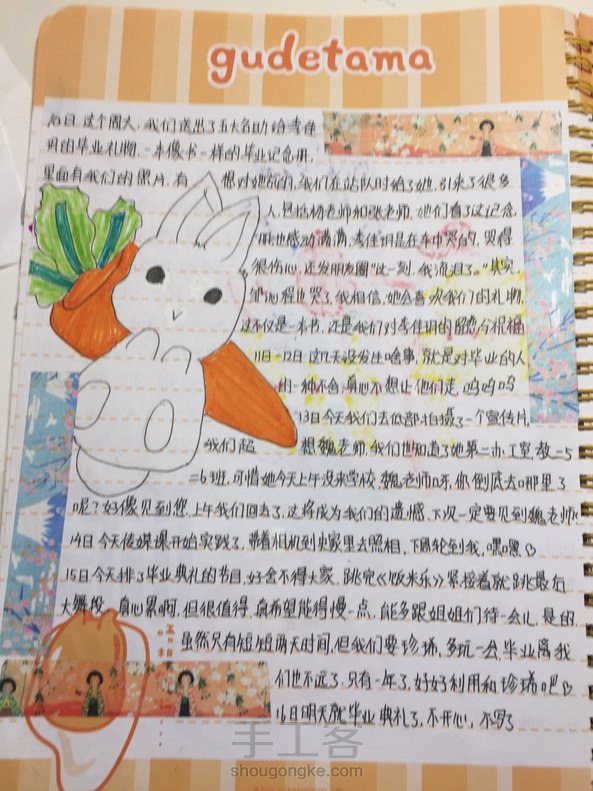 gudetama
10日 这个周天,我们送出了五大名助给李佳
玥的毕业礼物,一本像书一样的毕业记念册,
里面有我们的照片,有 想对她说的,我们在站队时给了她,引来了很多
人,包括杨老师和张老师,她们看了这记念
册也感动满满,李佳玥是在车中哭的,哭得
很伤心,还发朋友圈"这一刻,我流泪了。"其实,
邹沁程也哭了,我相信,她会喜欢我们的礼物,
这不仅是一本书,还是我们对李佳玥的留恋今祝福
11日-12日 这几天没发生啥事,就是对毕业的人
的一种不舍,真心不想让他们走,呜呜呜
13日今天我们去低部拍摄了一个宣传片,
我们超 想魏老师,我们也知道了她第二办工室,教二5
二6班,可惜她今天上午没来学校,魏老师吖,你倒底去哪里了
呢?好像见到您,上午我们回去了,这将成为我们的遗憾,下次一定要见到魏老师!
14日今天传媒课开始实践了,带着相机到史家里去照相,下周轮到我,嘿嘿
15日今天排了毕业典礼的节目,好舍不得大家,跳完《饭米乐》紧接着就跳最后
大舞段,真心累啊,但很值得,真希望能得慢一点,能多跟姐姐们待一会儿,是的,
虽然只有短短两天时间,但我们要珍琋,多玩一会,毕业离我
们也不远了,只有一年了,好好利用和珍琋吧
16日明天就毕业典礼了,不开心,不写了
手工客
shougongke.com